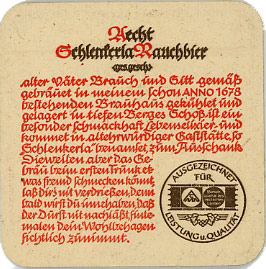 Aecht
Schlenkerla Rauchbier
gesgesch
alter Väter Brauch und Sitt gemäß
gebräuet in meinem schon ANNO 1678
bestehenden Brauhaus, gekühlet und
gelagert in tiefen Berges Schoß, ist ein
besonder schmackhaft Lebenselixier, und
kommet in altehrwürdiger Gaststätte, so
„Schlenkerla“ benamset, zum Ausschank
Dieweilen aber das Ge-
bräu beim ersten Trunk et-
was fremd schmecken könnt,
laß dir's nit verdrießen, denn
bald wirst du innehaben, daß
der Durst nit nachläßt, sinte-
malen dein Wohlbehagen
sichtlich zunimmt.
AUSGEZEICHNET
FÜR
LEISTUNG u. QUALITÄT